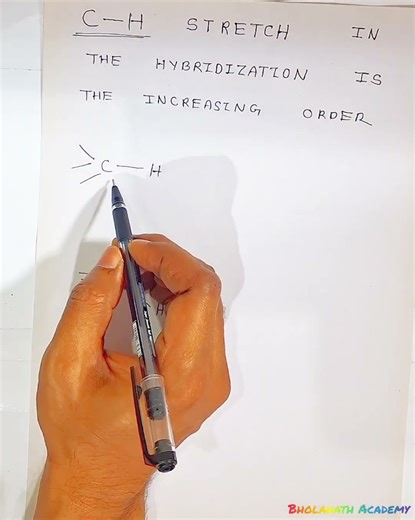 C-H STRETCH IN
THE HYBRIDIZATION IS
THE INCREASING ORDER
C-H
BHOLANATH ACADEMY